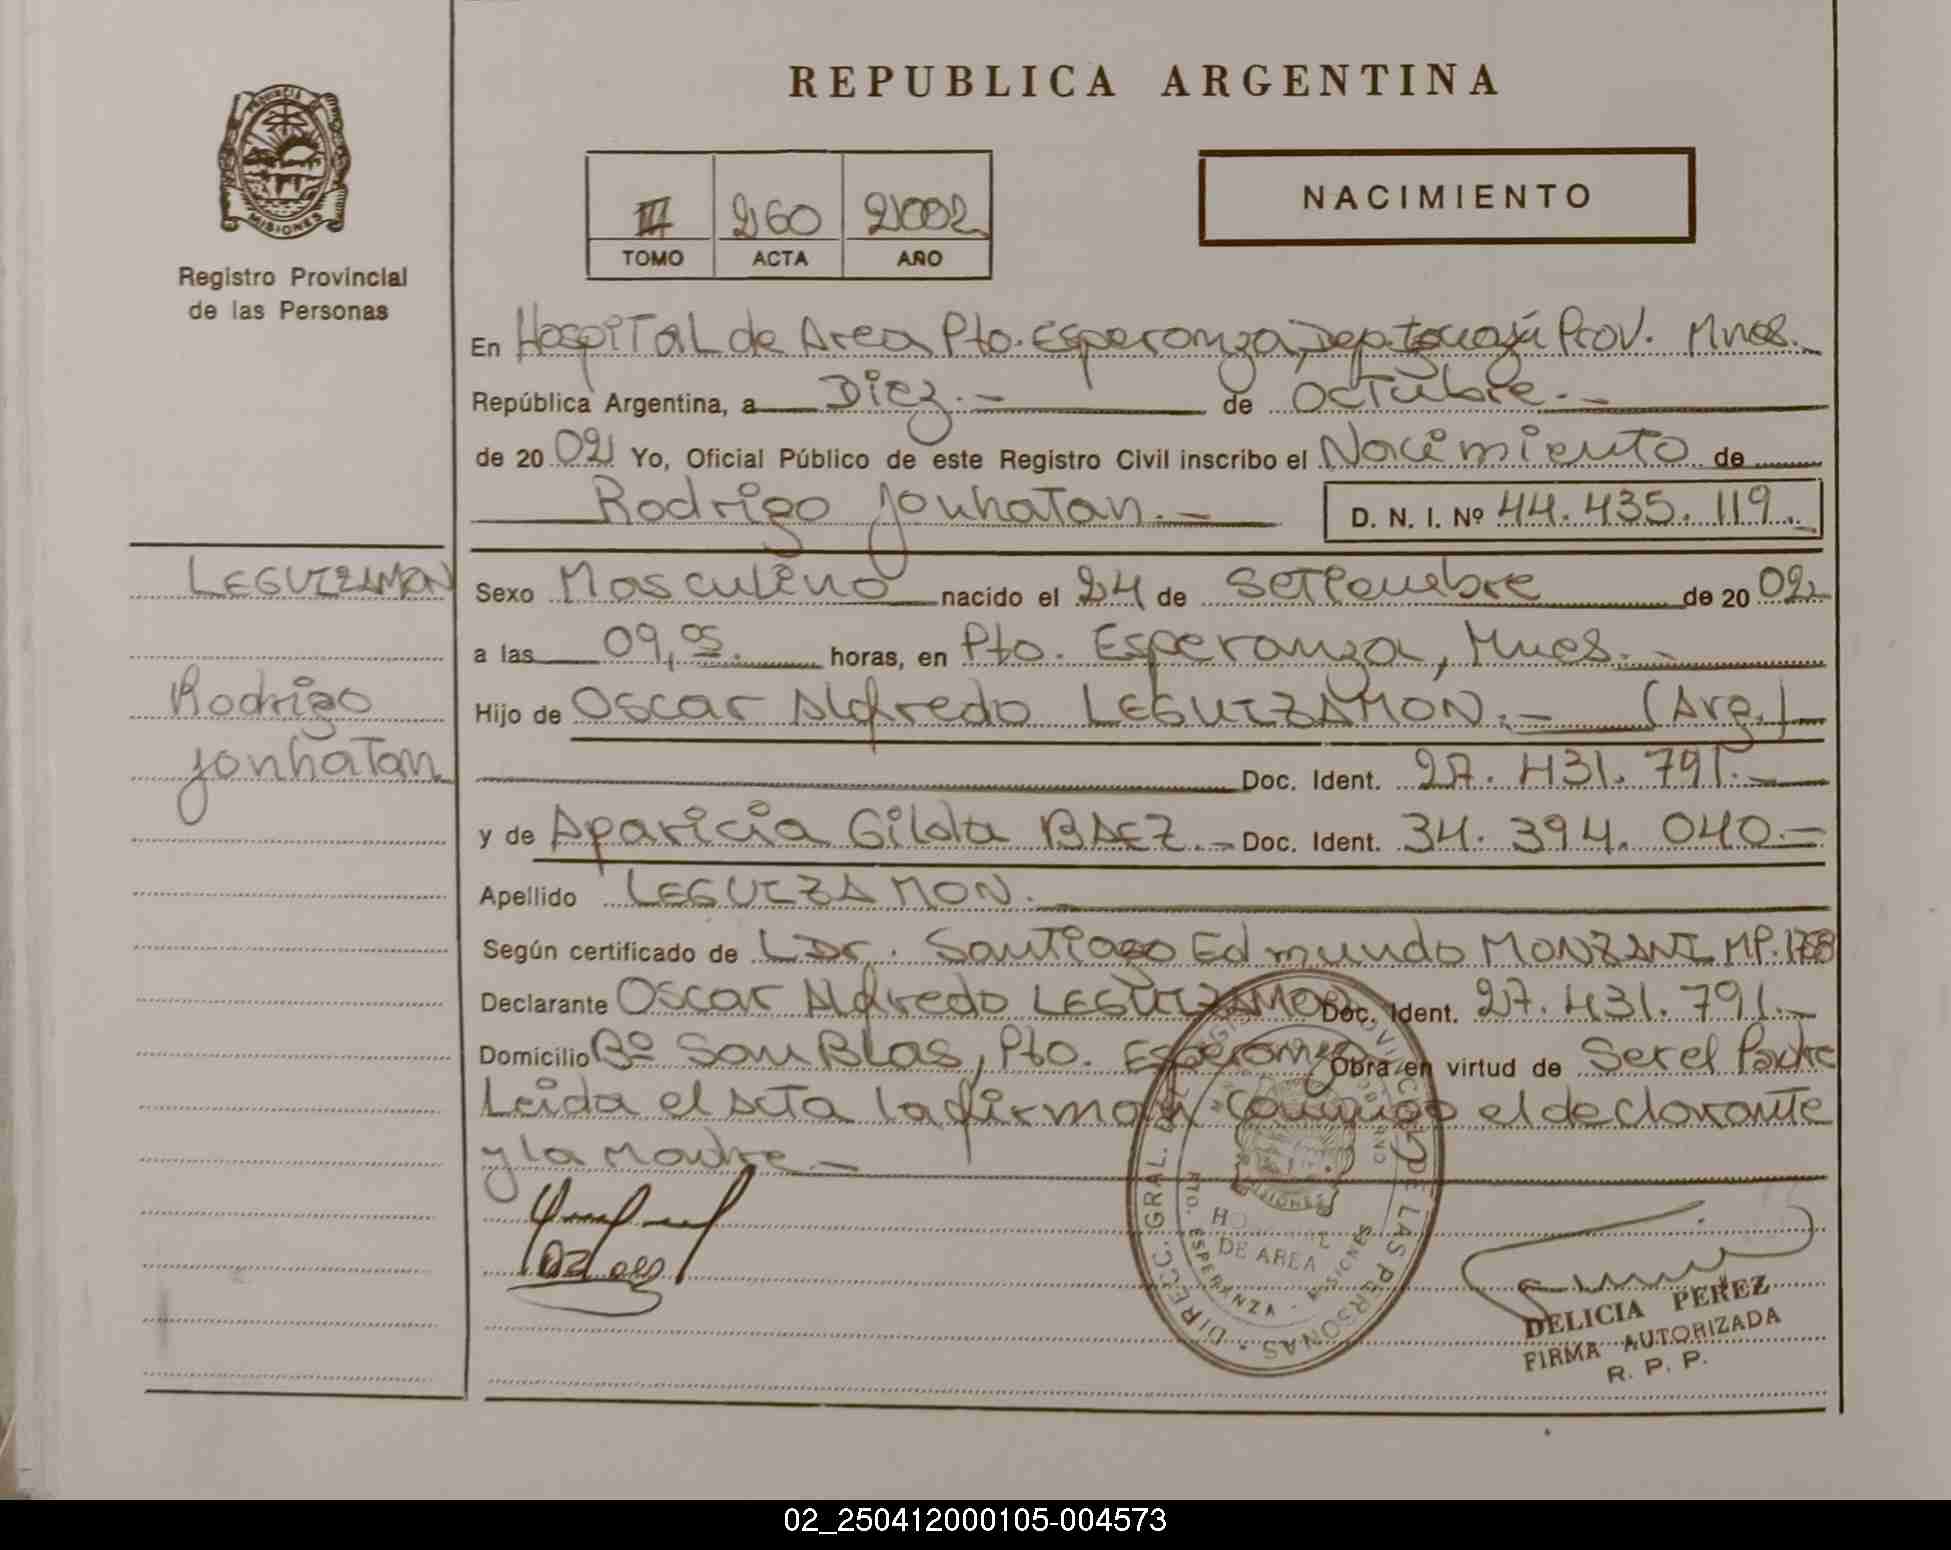 REPUBLICA ARGENTINA
PROVINCIA DE MISIONES
Registro Provincial
de las Personas
III 260 2002
TOMO ACTA AÑO
NACIMIENTO
En Hospital de Area Pto. Esperanza, Dep. Iguazú Prov. Mnes.
República Argentina, a Diez.- de Octubre.-
de 20 02 Yo, Oficial Público de este Registro Civil inscribo el Nacimiento de
Rodrigo Jonhatan.- D. N. I. Nº 44.435.119.-
LEGUIZAMON
Rodrigo
Jonhatan
Sexo Masculino nacido el 24 de Setiembre de 20 02
a las 09,05. horas, en Pto. Esperanza, Mnes.-
Hijo de Oscar Alfredo LEGUIZAMON.- (Arg.)
Doc. Ident. 27.431.791.-
y de Aparicia Gilda BAEZ.- Doc. Ident. 34.394.040.-
Apellido LEGUIZAMON.-
Según certificado de Dr. Santiago Edmundo MONZANI MP.178
Declarante Oscar Alfredo LEGUIZAMON Doc. Ident. 27.431.791.-
Domicilio Bº San Blas, Pto. Esperanza Obra en virtud de Ser el Padre
Leida el acta la firman conmigo el declarante
y la Madre.-
DIRECC. GRAL. DEL REGISTRO PROVINCIAL DE LAS PERSONAS
DE AREA
PTO. ESPERANZA - MISIONES
DELICIA PEREZ
FIRMA AUTORIZADA
R. P. P.
02_250412000105-004573